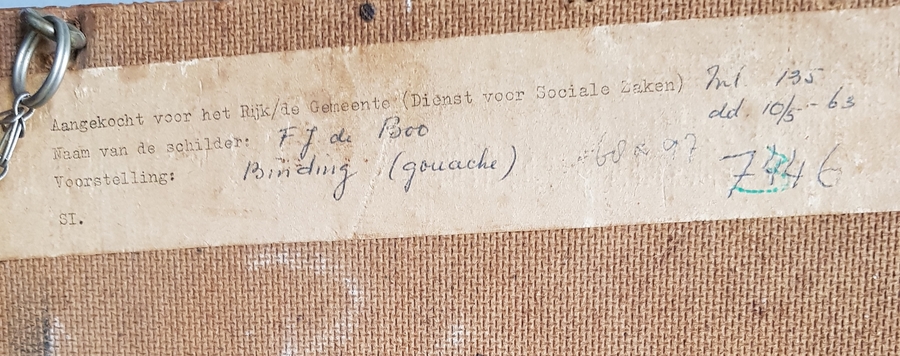 Aangekocht voor het Rijk/de Gemeente (Dienst voor Sociale Zaken) 135
dd. 10/5 - 63
Naam van de schilder: F J de Boo
Voorstelling: Binding (gouache)
SI.